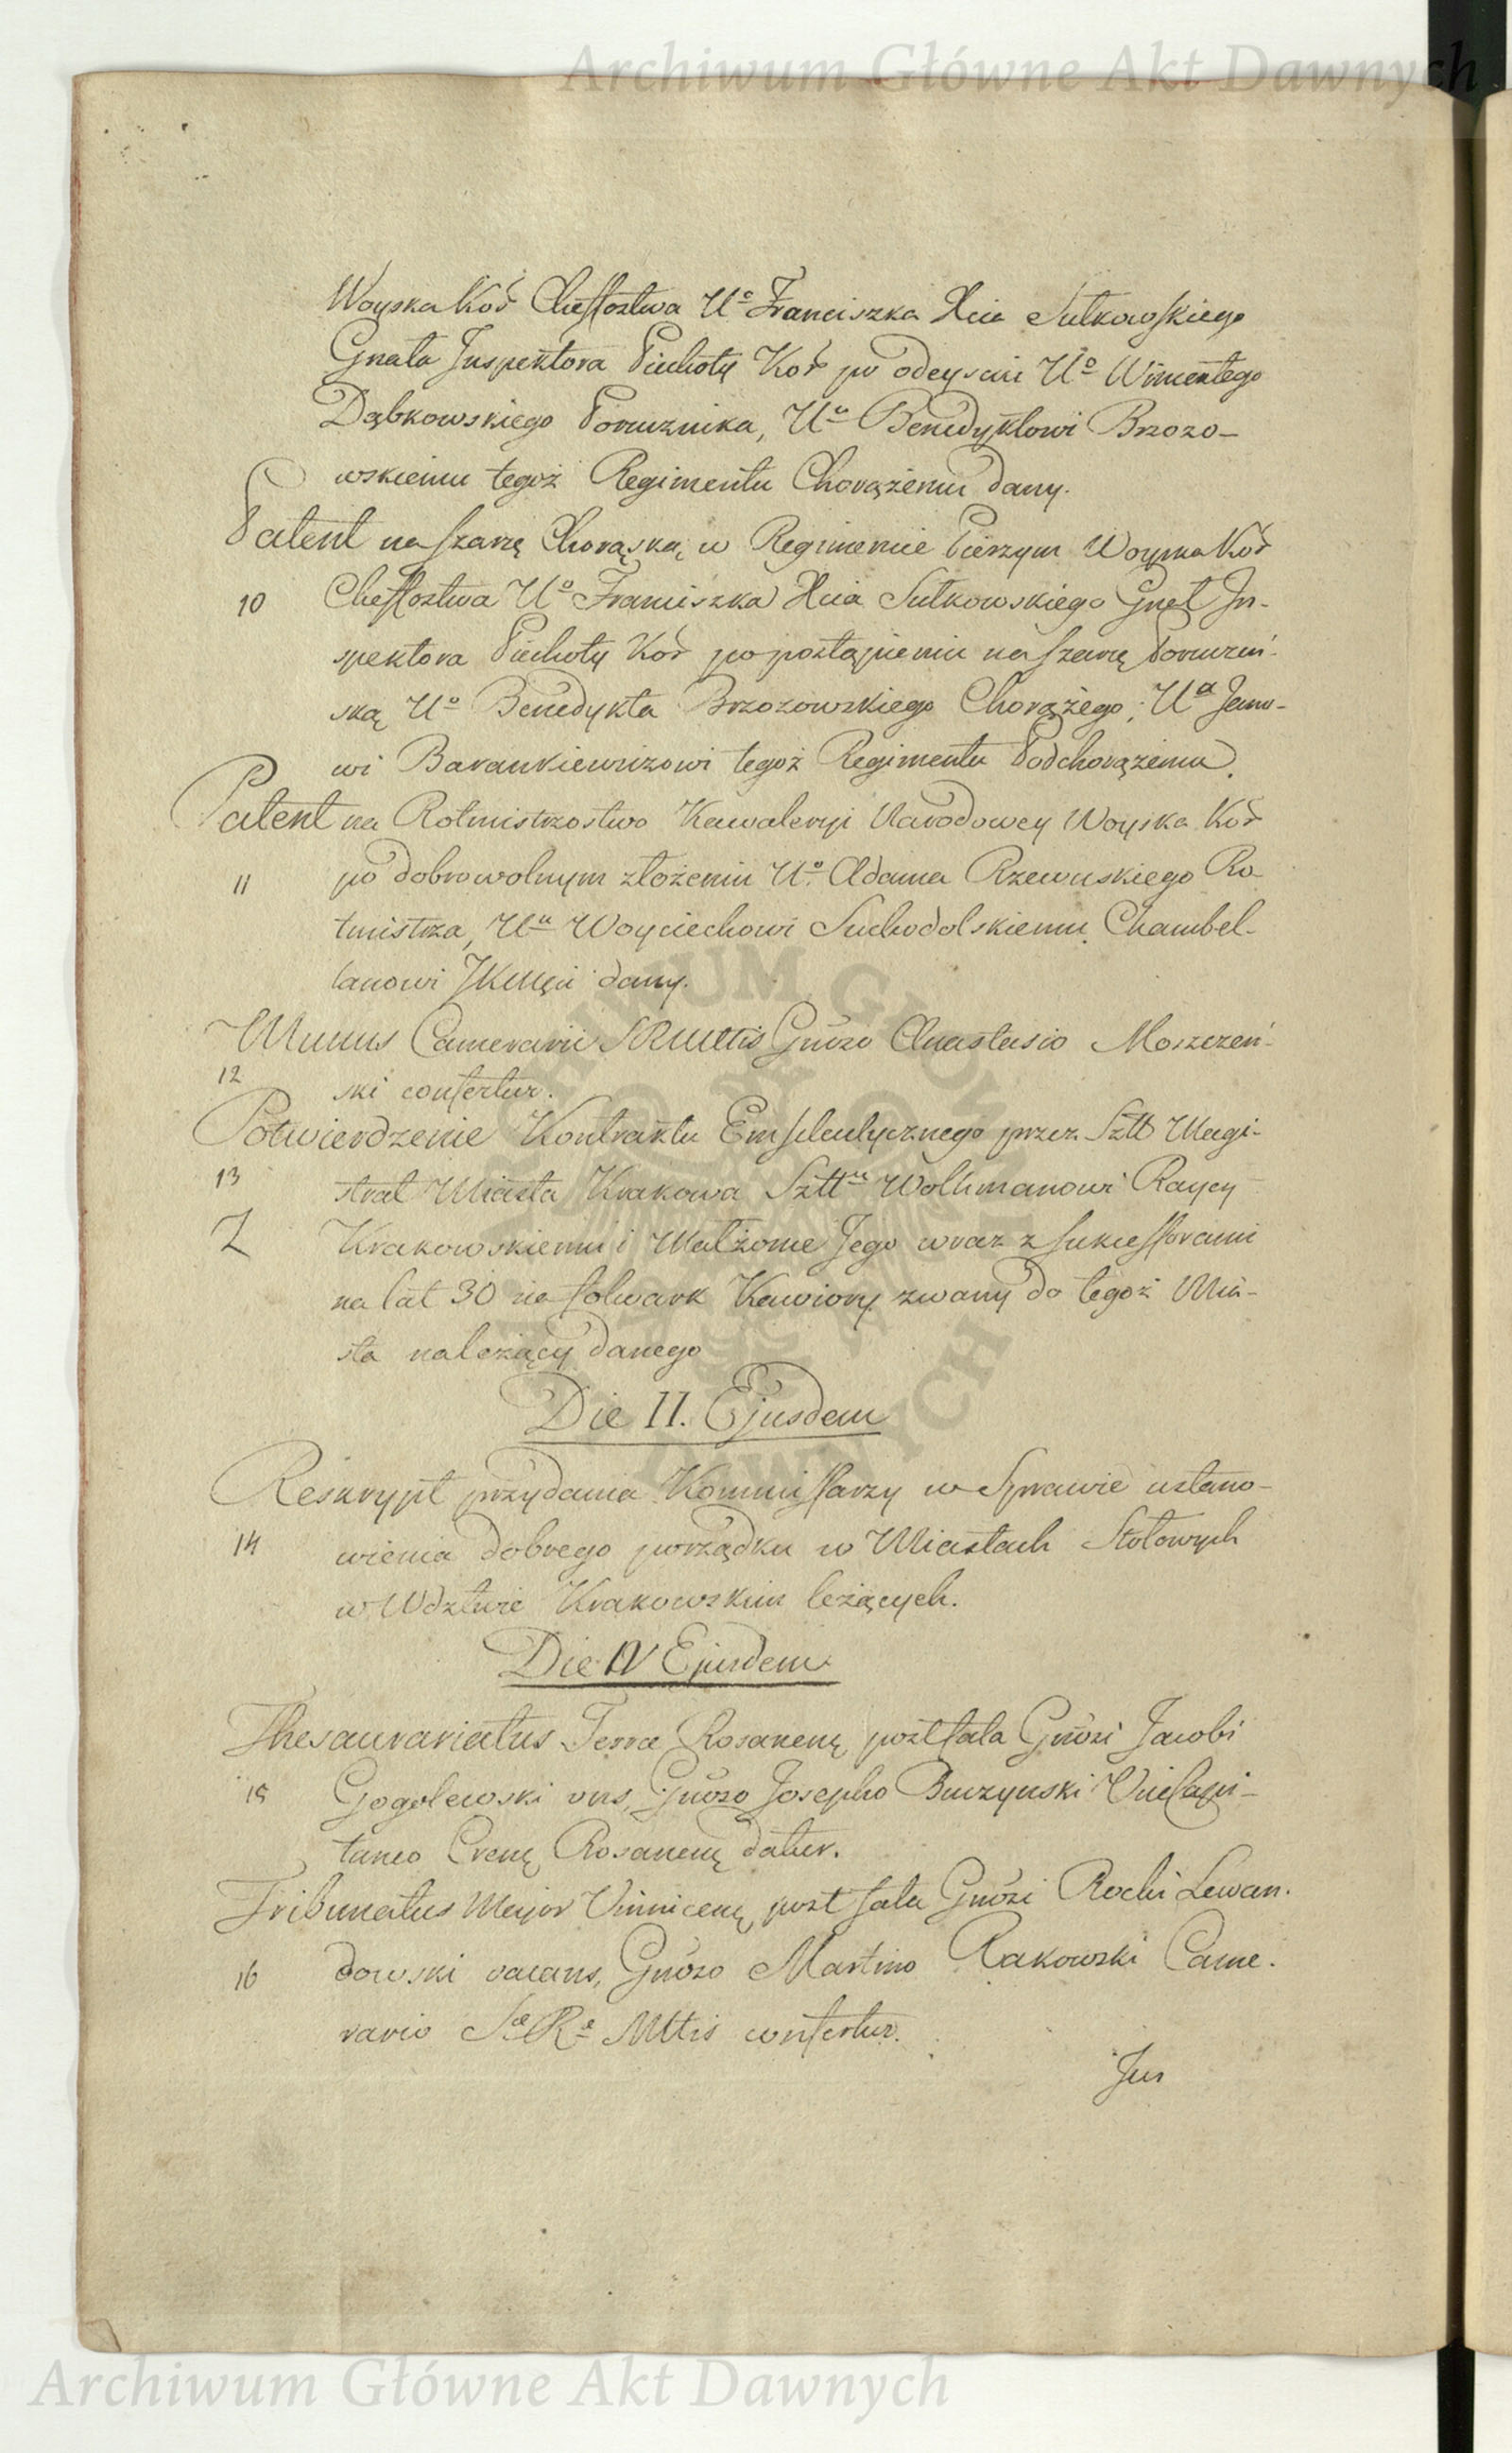 Archiwum Główne Akt Dawnych
Woyska Kor Cheffostwa Uo Franciszka Xcia Sułkowskiego
Gnała Inspektora Piechoty Kor po odeyściu Uo Wincentego
Dąbkowskiego Porucznika, Uu Benedyktowi Brzozo-
wskiemu tegoż Regimentu Chorążemu dany.
Patent na szarżę Chorąską w Regimencie Pieszym Woyska Kor
10 Cheffostwa Uo Franciszka Xcia Sułkowskiego Gnet In-
spektora Piechoty Kor po postąpieniu na szarżę Poruczni-
ską Uo Benedykta Brzozowskiego Chorążego; Uu Jano-
wi Barankiewiczowi tegoż Regimentu Podchorążemu.
Patent na Rotmistrzostwo Kawaleryi Narodowey Woyska Kor
11 po dobrowolnym złożeniu Uo Adama Rzewuskiego Ro-
tmistrza, Uu Woyciechowi Suchodolskiemu Chambel-
lanowi JKMści dany.
Munus Camerarii SRMttis Gnoso Anastasio Moszczeń-
12 ski confertur.
Potwierdzenie Kontraktu Emfiteutycznego przez Sztt Magi-
13 strat Miasta Krakowa Szttu Wolhmanowi Raycy
Z Krakowskiemu i Małżonie Jego wraz z sukcessorami
na lat 30 na folwark Kawiory zwany do tegoż Mia-
sta należący danego
Die II. Ejusdem
Reskrypt przydania Kommissarzy w Sprawie ustano-
14 wienia dobrego porządku w Miastach Stołowych
w Wdztwie Krakowskim leżących.
Die IV Ejusdem
Thesaurariatus Terrae Rosanenę post fata Gnosi Jacobi
15 Gogolewski vns, Gnoso Josepho Buczynski Vicecapi-
taneo Crenę Rosanenę datur.
Tribunatus Major Vinnicenę post fata Gnosi Rochi Lewan-
16 dowski vacans, Gnoso Martino Rakowski Came-
rario Sae Rae Mttis confertur.
Jus
Archiwum Główne Akt Dawnych